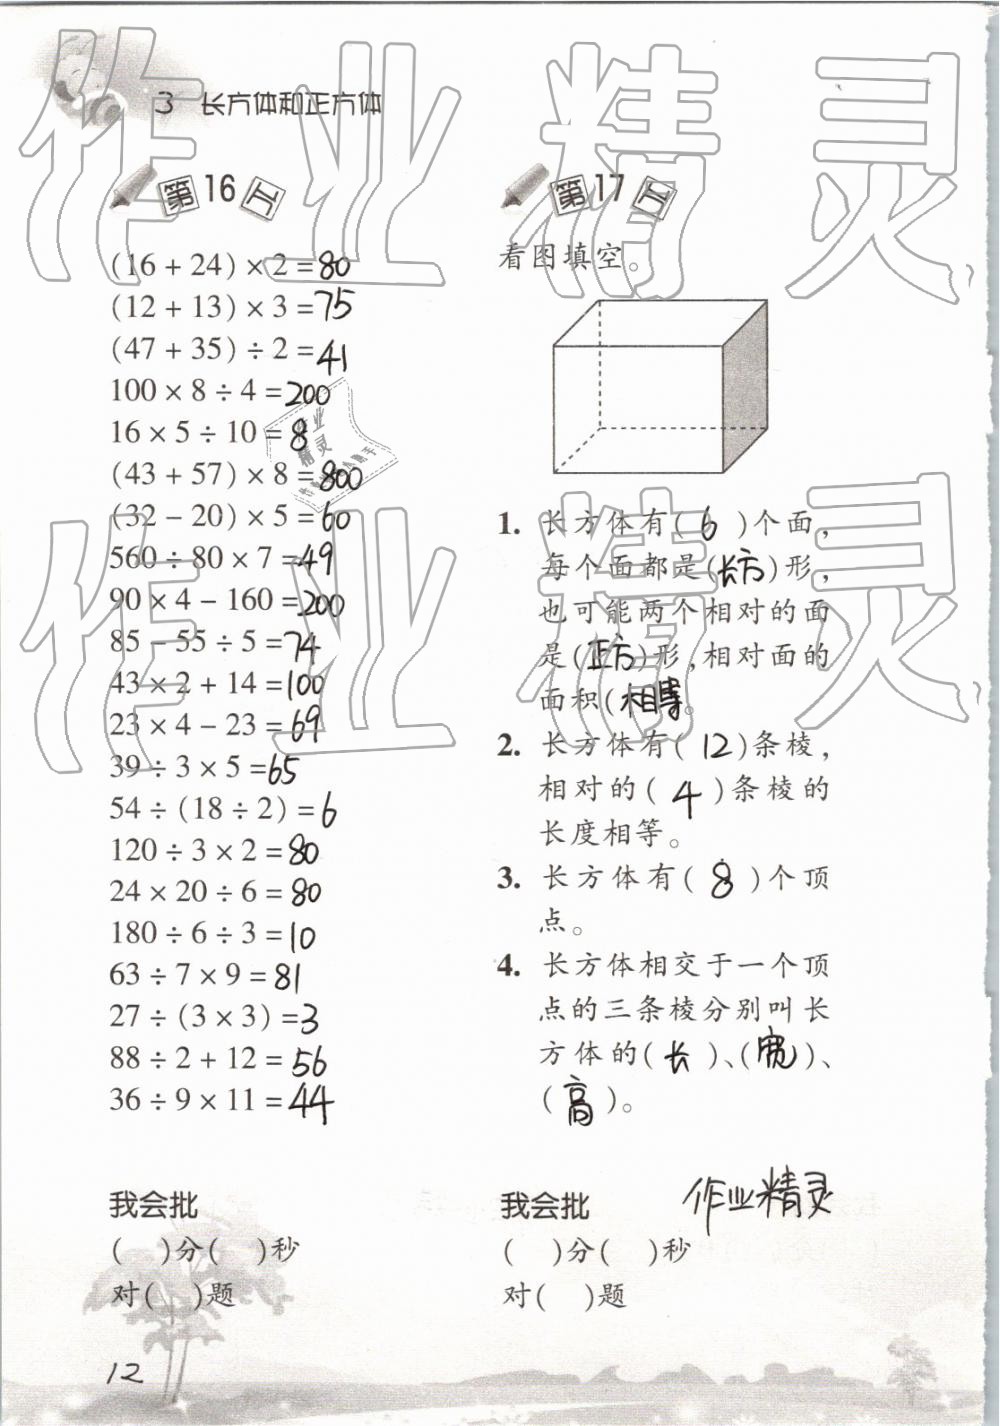 3 长方体和正方体
第16页
(16 + 24) × 2 = 80
(12 + 13) × 3 = 75
(47 + 35) ÷ 2 = 41
100 × 8 ÷ 4 = 200
16 × 5 ÷ 10 = 8
(43 + 57) × 8 = 800
(32 − 20) × 5 = 60
560 ÷ 80 × 7 = 49
90 × 4 − 160 = 200
85 − 55 ÷ 5 = 74
43 × 2 + 14 = 100
23 × 4 − 23 = 69
39 ÷ 3 × 5 = 65
54 ÷ (18 ÷ 2) = 6
120 ÷ 3 × 2 = 80
24 × 20 ÷ 6 = 80
180 ÷ 6 ÷ 3 = 10
63 ÷ 7 × 9 = 81
27 ÷ (3 × 3) = 3
88 ÷ 2 + 12 = 56
36 ÷ 9 × 11 = 44
我会批
( )分( )秒
对( )题
12
第17页
看图填空。
1. 长方体有( 6 )个面,
每个面都是(长方)形,
也可能两个相对的面
是(正方)形,相对面的
面积(相等。
2. 长方体有( 12)条棱,
相对的( 4 )条棱的
长度相等。
3. 长方体有( 8 )个顶
点。
4. 长方体相交于一个顶
点的三条棱分别叫长
方体的( 长 )、(宽)、
( 高 )。
作业精灵
我会批
( )分( )秒
对( )题
作业精灵
作业精灵
作业
精灵